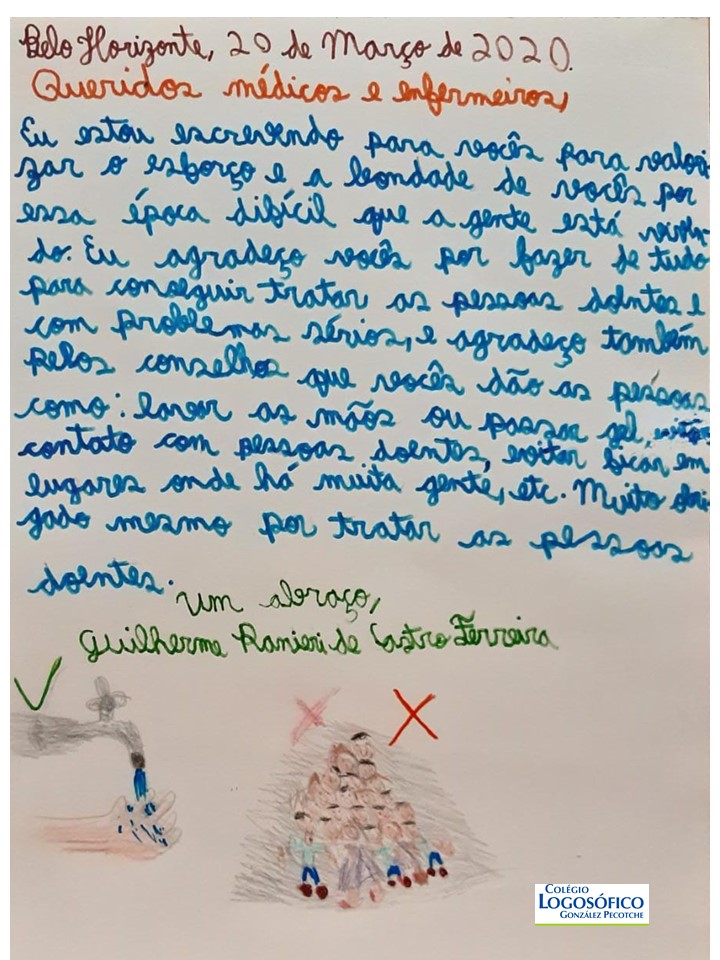 Belo Horizonte, 20 de Março de 2020.
Queridos médicos e enfermeiros,
Eu estou escrevendo para vocês para valori-
zar o esforço e a bondade de vocês por
essa época difícil que a gente está viven-
do. Eu agradeço vocês por fazer de tudo
para conseguir tratar as pessoas doentes e
com problemas sérios, e agradeço também
pelos conselhos que vocês dão as pessoas
como: lavar as mãos ou passar gel, evitar
contato com pessoas doentes, evitar ficar em
lugares onde há muita gente, etc. Muito obri-
gado mesmo por tratar as pessoas
doentes.
Um abraço,
Guilherme Ranieri de Castro Ferreira
COLÉGIO
LOGOSÓFICO
GONZÁLEZ PECOTCHE